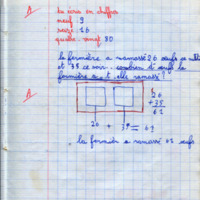 A
tu écris en chiffres
neuf 9
seize 16
quatre-vingt 80
la fermière a ramassé 26 œufs ce
et 35 ce soir. combien d'œufs la
fermière a-t-elle ramassé?
A
26
+35
61
26 + 35 = 61
la fermière a ramassé 61 œufs